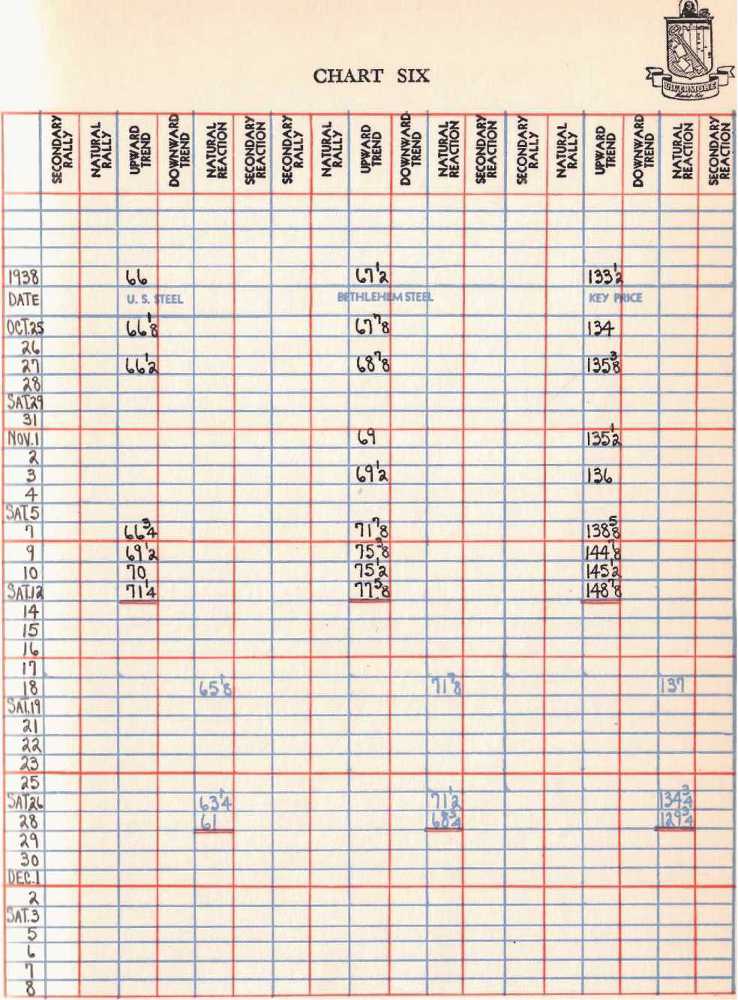 LIVERMORE
CHART SIX
SECONDARY RALLY NATURAL RALLY UPWARD TREND DOWNWARD TREND NATURAL REACTION SECONDARY REACTION SECONDARY RALLY NATURAL RALLY UPWARD TREND DOWNWARD TREND NATURAL REACTION SECONDARY REACTION SECONDARY RALLY NATURAL RALLY UPWARD TREND DOWNWARD TREND NATURAL REACTION SECONDARY REACTION
1938 66 67½ 133½
DATE U. S. STEEL BETHLEHEM STEEL KEY PRICE
OCT.25 66⅛ 67⅞ 134
26
27 66½ 68⅞ 135⅜
28
SAT.29
31
NOV.1 69 135½
2
3 69½ 136
4
SAT.5
7 66¾ 71⅞ 138⅝
9 69½ 75⅜ 144⅞
10 70 75½ 145½
SAT.12 71¼ 77⅝ 148⅞
14
15
16
17
18 65⅛ 71⅞ 137
SAT.19
21
22
23
25
SAT26 63¼ 71½ 134¾
28 61 68¾ 129¾
29
30
DEC.1
2
SAT.3
5
6
7
8